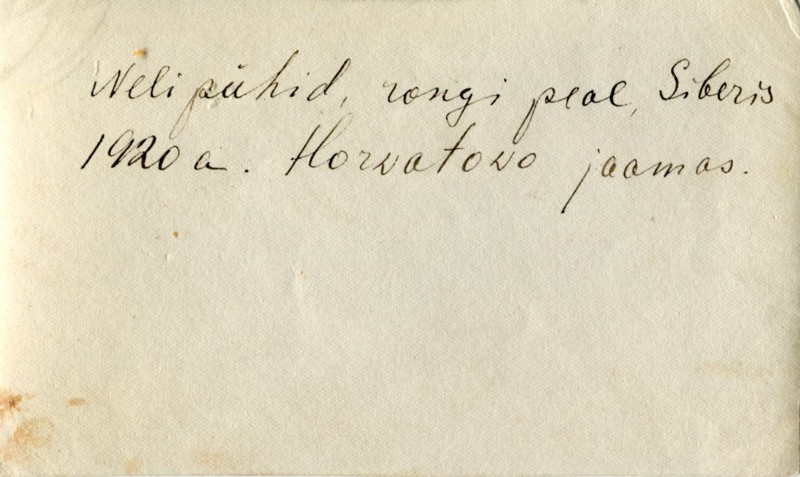 Nelipühid, rongi peal, Siberis
1920 a. Horvatovo jaamas.